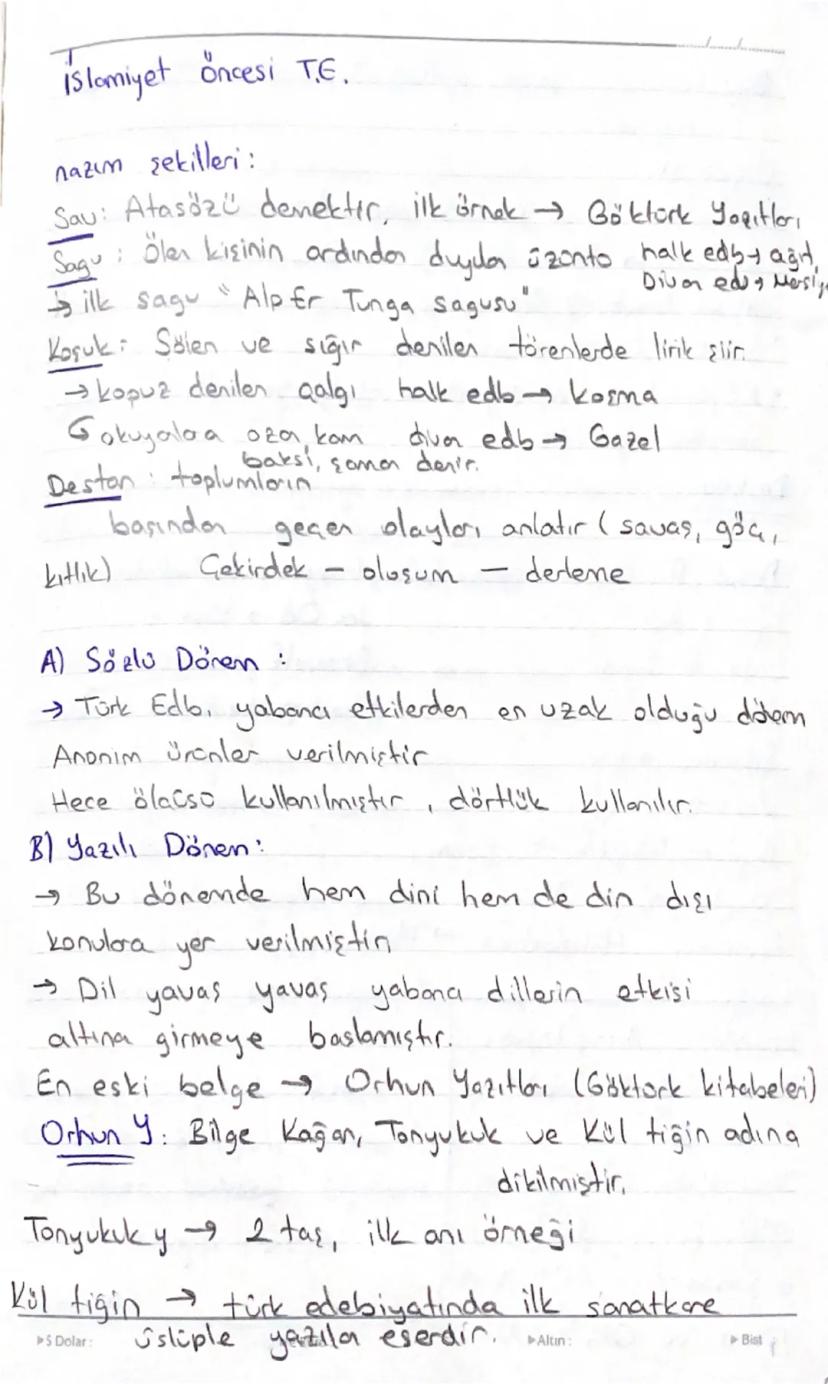 İslamiyet öncesi T.E.
nazım şekilleri:
Sav: Atasözü demektir, ilk örnek → Göktürk Yazıtları
Sagu: Ölen kişinin ardından duyulan üzüntü halk edb → ağıt,
Divan edb → Mersiye
↳ ilk sagu "Alp Er Tunga sagusu"
Koşuk: Şölen ve sığır denilen törenlerde lirik şiir.
→ kopuz denilen çalgı halk edb → koşma
↳ okuyalara ozan, kam divan edb → Gazel
baksı, şaman denir.
Destan: toplumların
başından geçen olayları anlatır (savaş, göç,
kıtlık) Çekirdek - oluşum - derleme
A) Sözlü Dönem:
→ Türk Edb. yabancı etkilerden en uzak olduğu dönem
Anonim ürünler verilmiştir
Hece ölçüsü kullanılmıştır, dörtlük kullanılır.
B) Yazılı Dönem:
→ Bu dönemde hem dini hem de din dışı
konulara yer verilmiştir
→ Dil yavaş yavaş yabancı dillerin etkisi
altına girmeye başlamıştır.
En eski belge → Orhun Yazıtları (Göktürk kitabeleri)
Orhun Y: Bilge Kağan, Tonyukuk ve Kül tiğin adına
dikilmiştir.
Tonyukuk y → 2 taş, ilk anı örneği
Kül tiğin → türk edebiyatında ilk sanatkare
üslüple yazılan eserdir.
▶$ Dolar: ▶Altın: ▶Bist